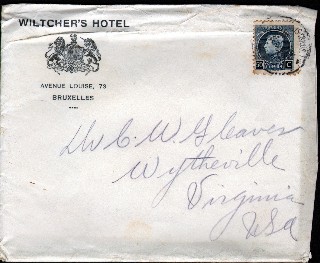 WILTCHER'S HOTEL
AVENUE LOUISE, 79
BRUXELLES
Dr C. W. Gleaves
Wytheville
Virginia
USA